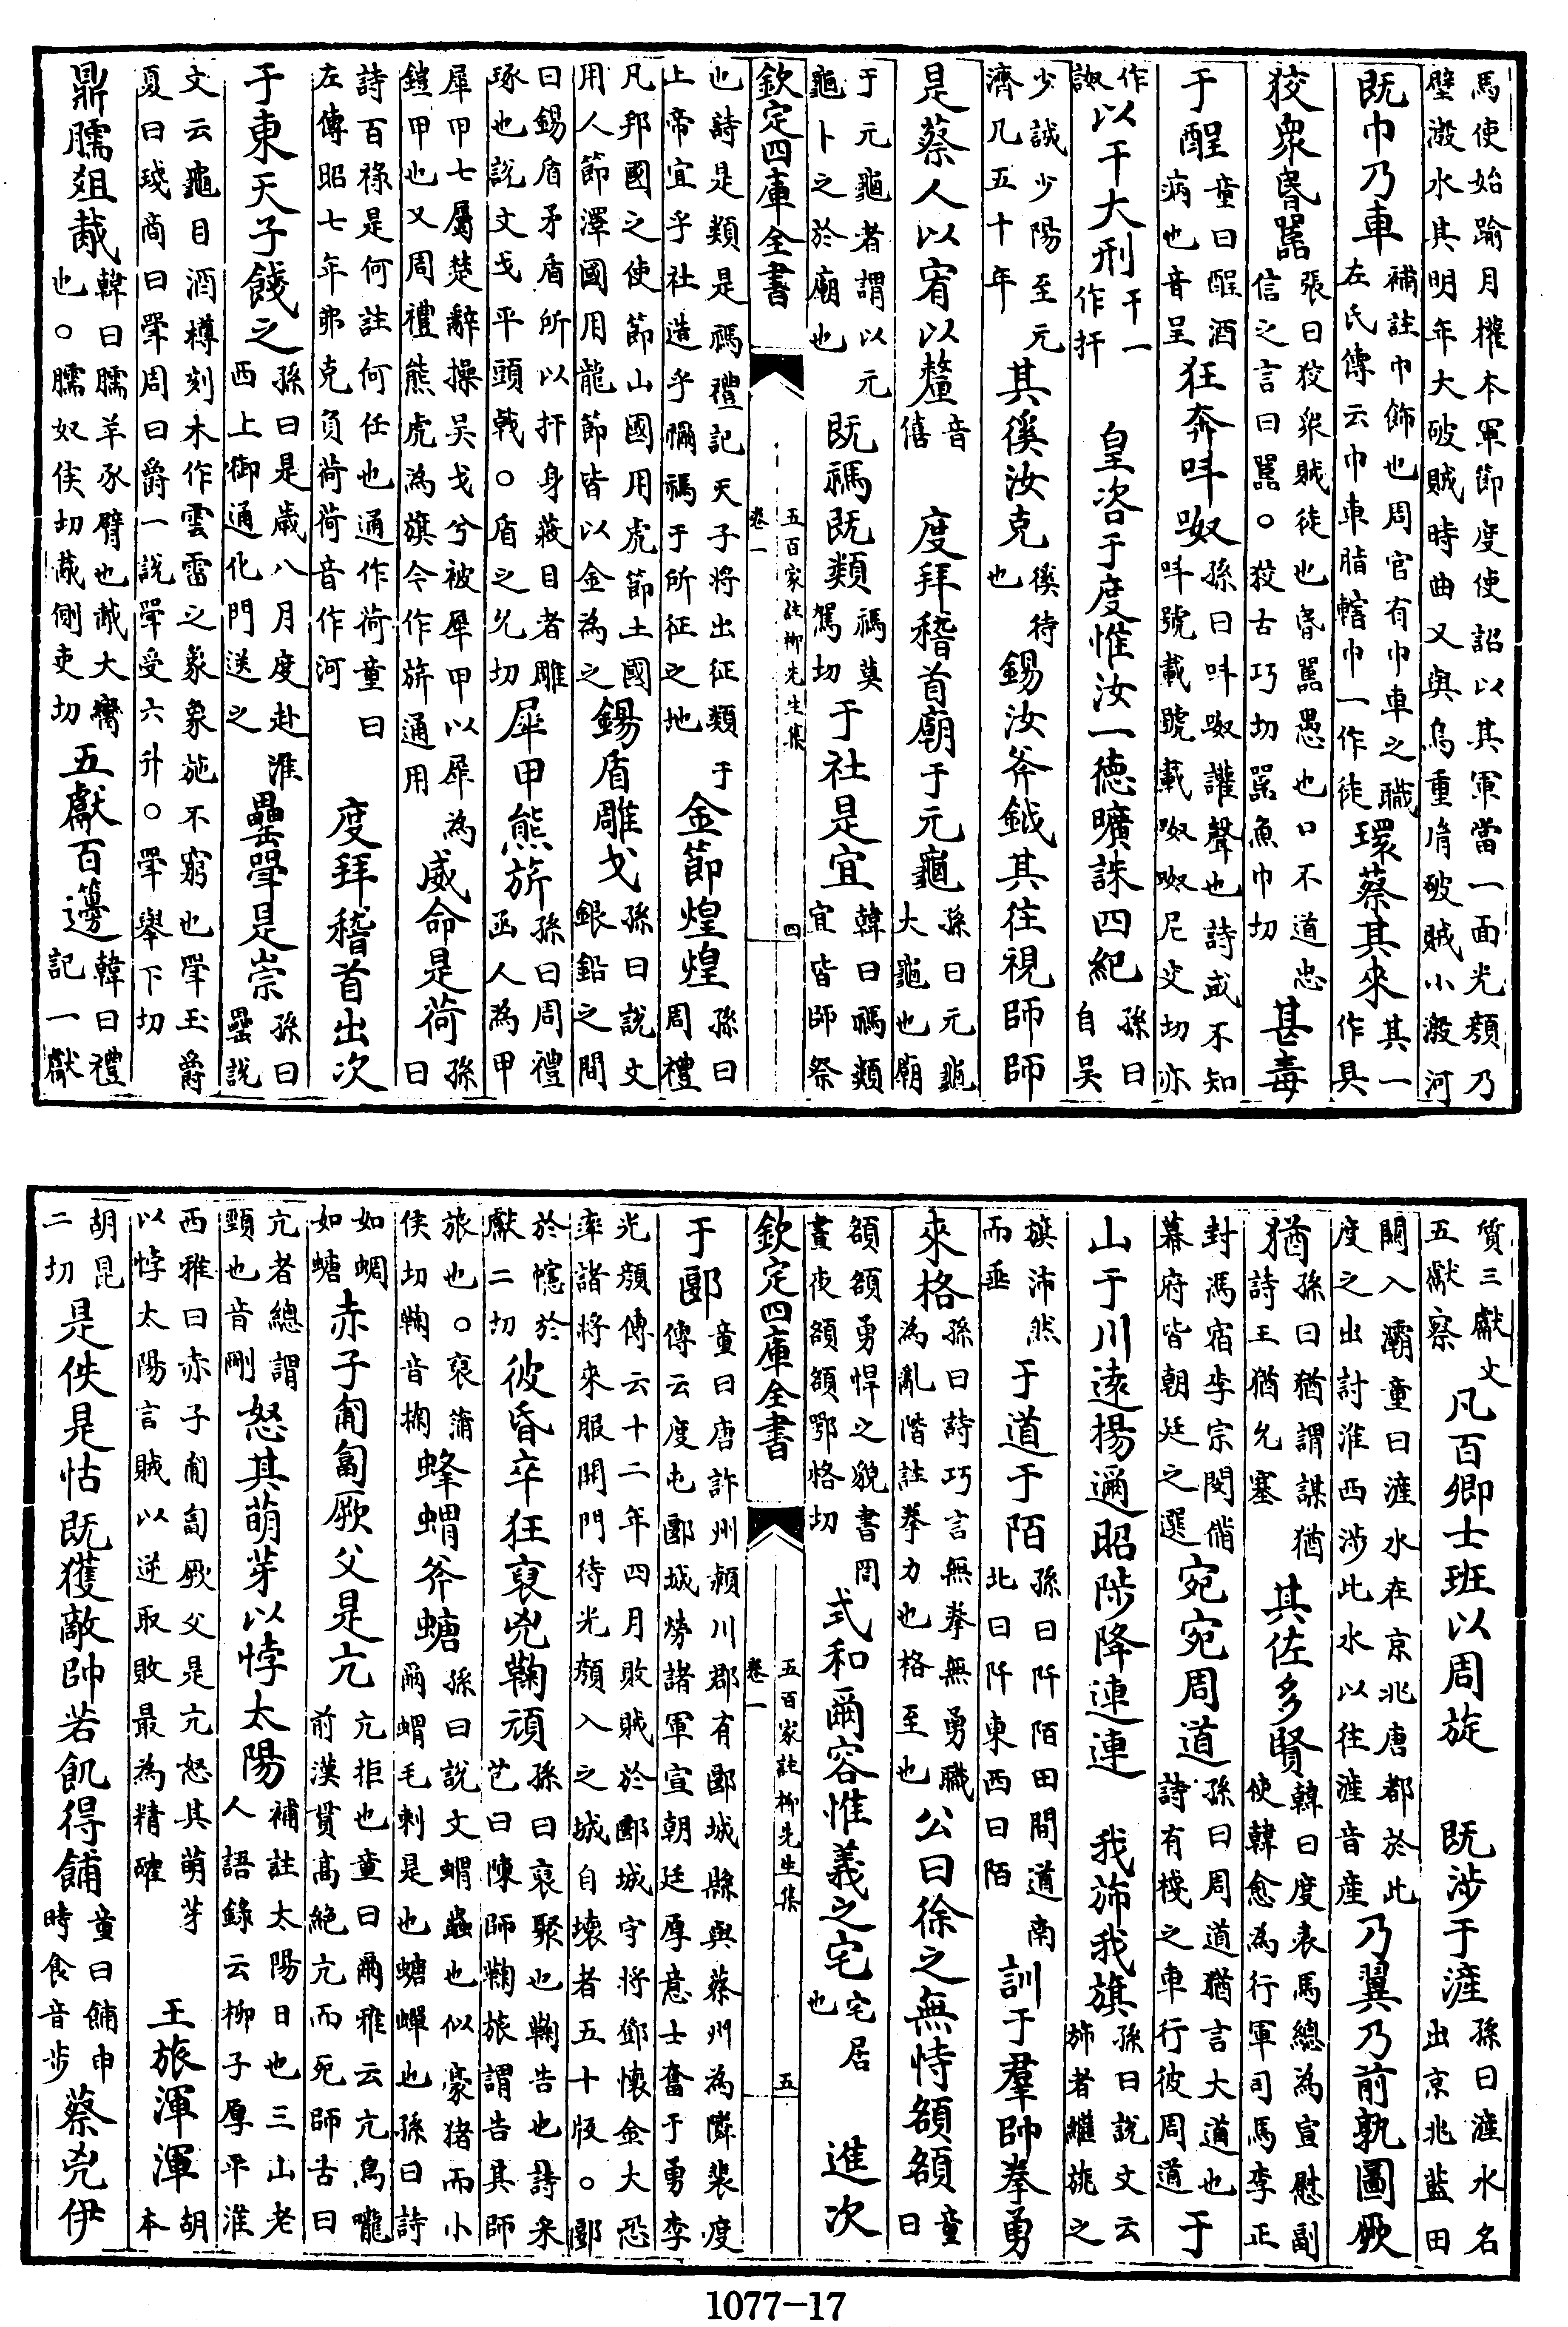 馬使始踰月權本軍節度使詔以其軍當一面光顔乃
壁溵水其明年大破賊時曲又與烏重胤破賊小溵河
既巾乃車補註巾飾也周官有巾車之職左氏傳云巾車脂轄巾一作徒環蔡其來其一作具
狡衆昬嚚張曰狡衆賊徒也昬嚚愚也口不道忠信之言曰嚚○狡古巧切嚚魚巾切甚毒
于酲童曰酲酒病也音呈狂奔呌呶孫曰呌呶讙聲也詩或不知呌號載號載呶呶尼交切亦
作詉以干大刑干一作扞 皇咨于度惟汝一德曠誅四紀孫曰自吳
少誠少陽至元濟凡五十年其徯汝克徯待也錫汝斧鉞其往視師師
是蔡人以宥以釐音僖 度拜稽首廟于元龜孫曰元龜大龜也廟
于元龜者謂以元龜卜之於廟也既禡既類禡莫駕切于社是宜韓曰禡類宜皆師祭
欽定四庫全書 五百家註柳先生集 卷一 四
也詩是類是禡禮記天子將出征類于上帝宜乎社造乎禰禡于所征之地金節煌煌孫曰周禮
凡邦國之使節山國用虎節土國用人節澤國用龍節皆以金為之錫盾雕戈孫曰說文銀鉛之間
曰錫盾矛盾所以扞身蔽目者雕琢也說文戈平頭戟○盾之允切犀甲熊旂孫曰周禮函人為甲
犀甲七屬楚辭操吳戈兮被犀甲以犀為鎧甲也又周禮熊虎為旗今作旂通用威命是荷孫曰
詩百祿是何註何任也通作荷童曰左傳昭七年弗克負荷荷音作河 度拜稽首出次
于東天子餞之孫曰是歲八月度赴淮西上御通化門送之罍斝是崇孫曰罍說
文云龜目酒樽刻木作雲雷之象象施不窮也斝玉爵夏曰琖商曰斝周曰爵一說斝受六升○斝舉下切
鼎臑俎胾韓曰臑羊豕臂也胾大臠也○臑奴侯切胾側吏切五獻百籩韓曰禮記一獻
質三獻文五獻察凡百卿士班以周旋 既涉于滻孫曰滻水名出京兆藍田
關入灞童曰滻水在京兆唐都於此度之出討淮西涉此水以往滻音産乃翼乃前孰圖厥
猶孫曰猶謂謀猶詩王猶允塞 其佐多賢韓曰度表馬總為宣慰副使韓愈為行軍司馬李正
封馮宿李宗閔備幕府皆朝廷之選宛宛周道孫曰周道猶言大道也詩有棧之車行彼周道于
山于川遠揚邇昭陟降連連 我斾我旗孫曰說文云斾者繼旐之
旗沛然而垂于道于陌孫曰阡陌田間道南北曰阡東西曰陌訓于羣帥拳勇
來格孫曰詩巧言無拳無勇職為亂階註拳力也格至也公曰徐之無恃頟頟童曰
頟頟勇悍之貌書罔晝夜頟頟鄂恪切 式和爾容惟義之宅宅居也 進次
欽定四庫全書 五百家註柳先生集 卷一 五
于郾童曰唐許州潁川郡有郾城縣與蔡州為隣裴度傳云度屯郾城勞諸軍宣朝廷厚意士奮于勇李
光顔傳云十二年四月敗賊於郾城守將鄧懷金大恐率諸將來服開門待光顔入之城自壞者五十版○郾
於幰於獻二切彼昏卒狂裒兇鞠頑孫曰裒聚也鞠告也詩采芑曰陳師鞠旅謂告其師
旅也○裒蒲侯切鞠音掬蜂蝟斧螗孫曰說文蝟蟲也似豪猪而小爾蝟毛刺是也螗蟬也孫曰詩
如蜩如螗赤子匍匐厥父是亢亢拒也童曰爾雅云亢鳥嚨前漢貫高絶亢而死師古曰
亢者總謂頸也音剛怒其萌芽以悖太陽補註太陽日也三山老人語錄云柳子厚平淮
西雅曰赤子匍匐厥父是亢怒其萌芽以悖太陽言賊以逆取敗最為精確 王旅渾渾胡本
胡昆二切是佚是怙既獲敵帥若飢得餔童曰餔申時食音步蔡兇伊
1077-17